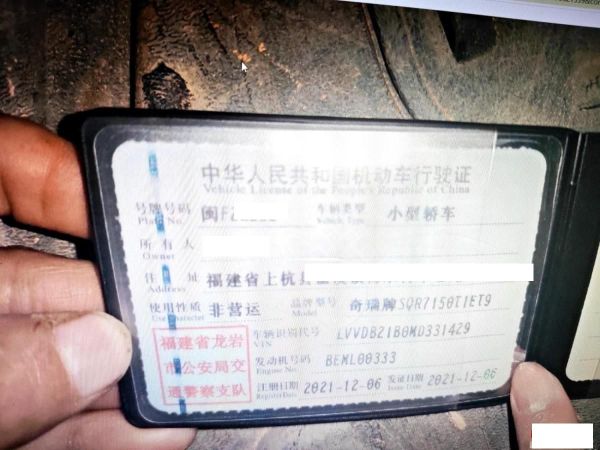 中华人民共和国机动车行驶证
Vehicle License of the People's Republic of China
号牌号码 闽F 车辆类型 小型轿车
Plate No. Vehicle Type
所有人
Owner
住址 福建省上杭县
Address
使用性质 非营运 品牌型号 奇瑞牌SQR7150T1ET9
Use Character Model
车辆识别代号 LVVDB21B0MD331429
VIN
发动机号码 BEML00333
Engine No.
注册日期 2021-12-06 发证日期 2021-12-06
Register Date Issue Date
福建省龙岩
市公安局交
通警察支队